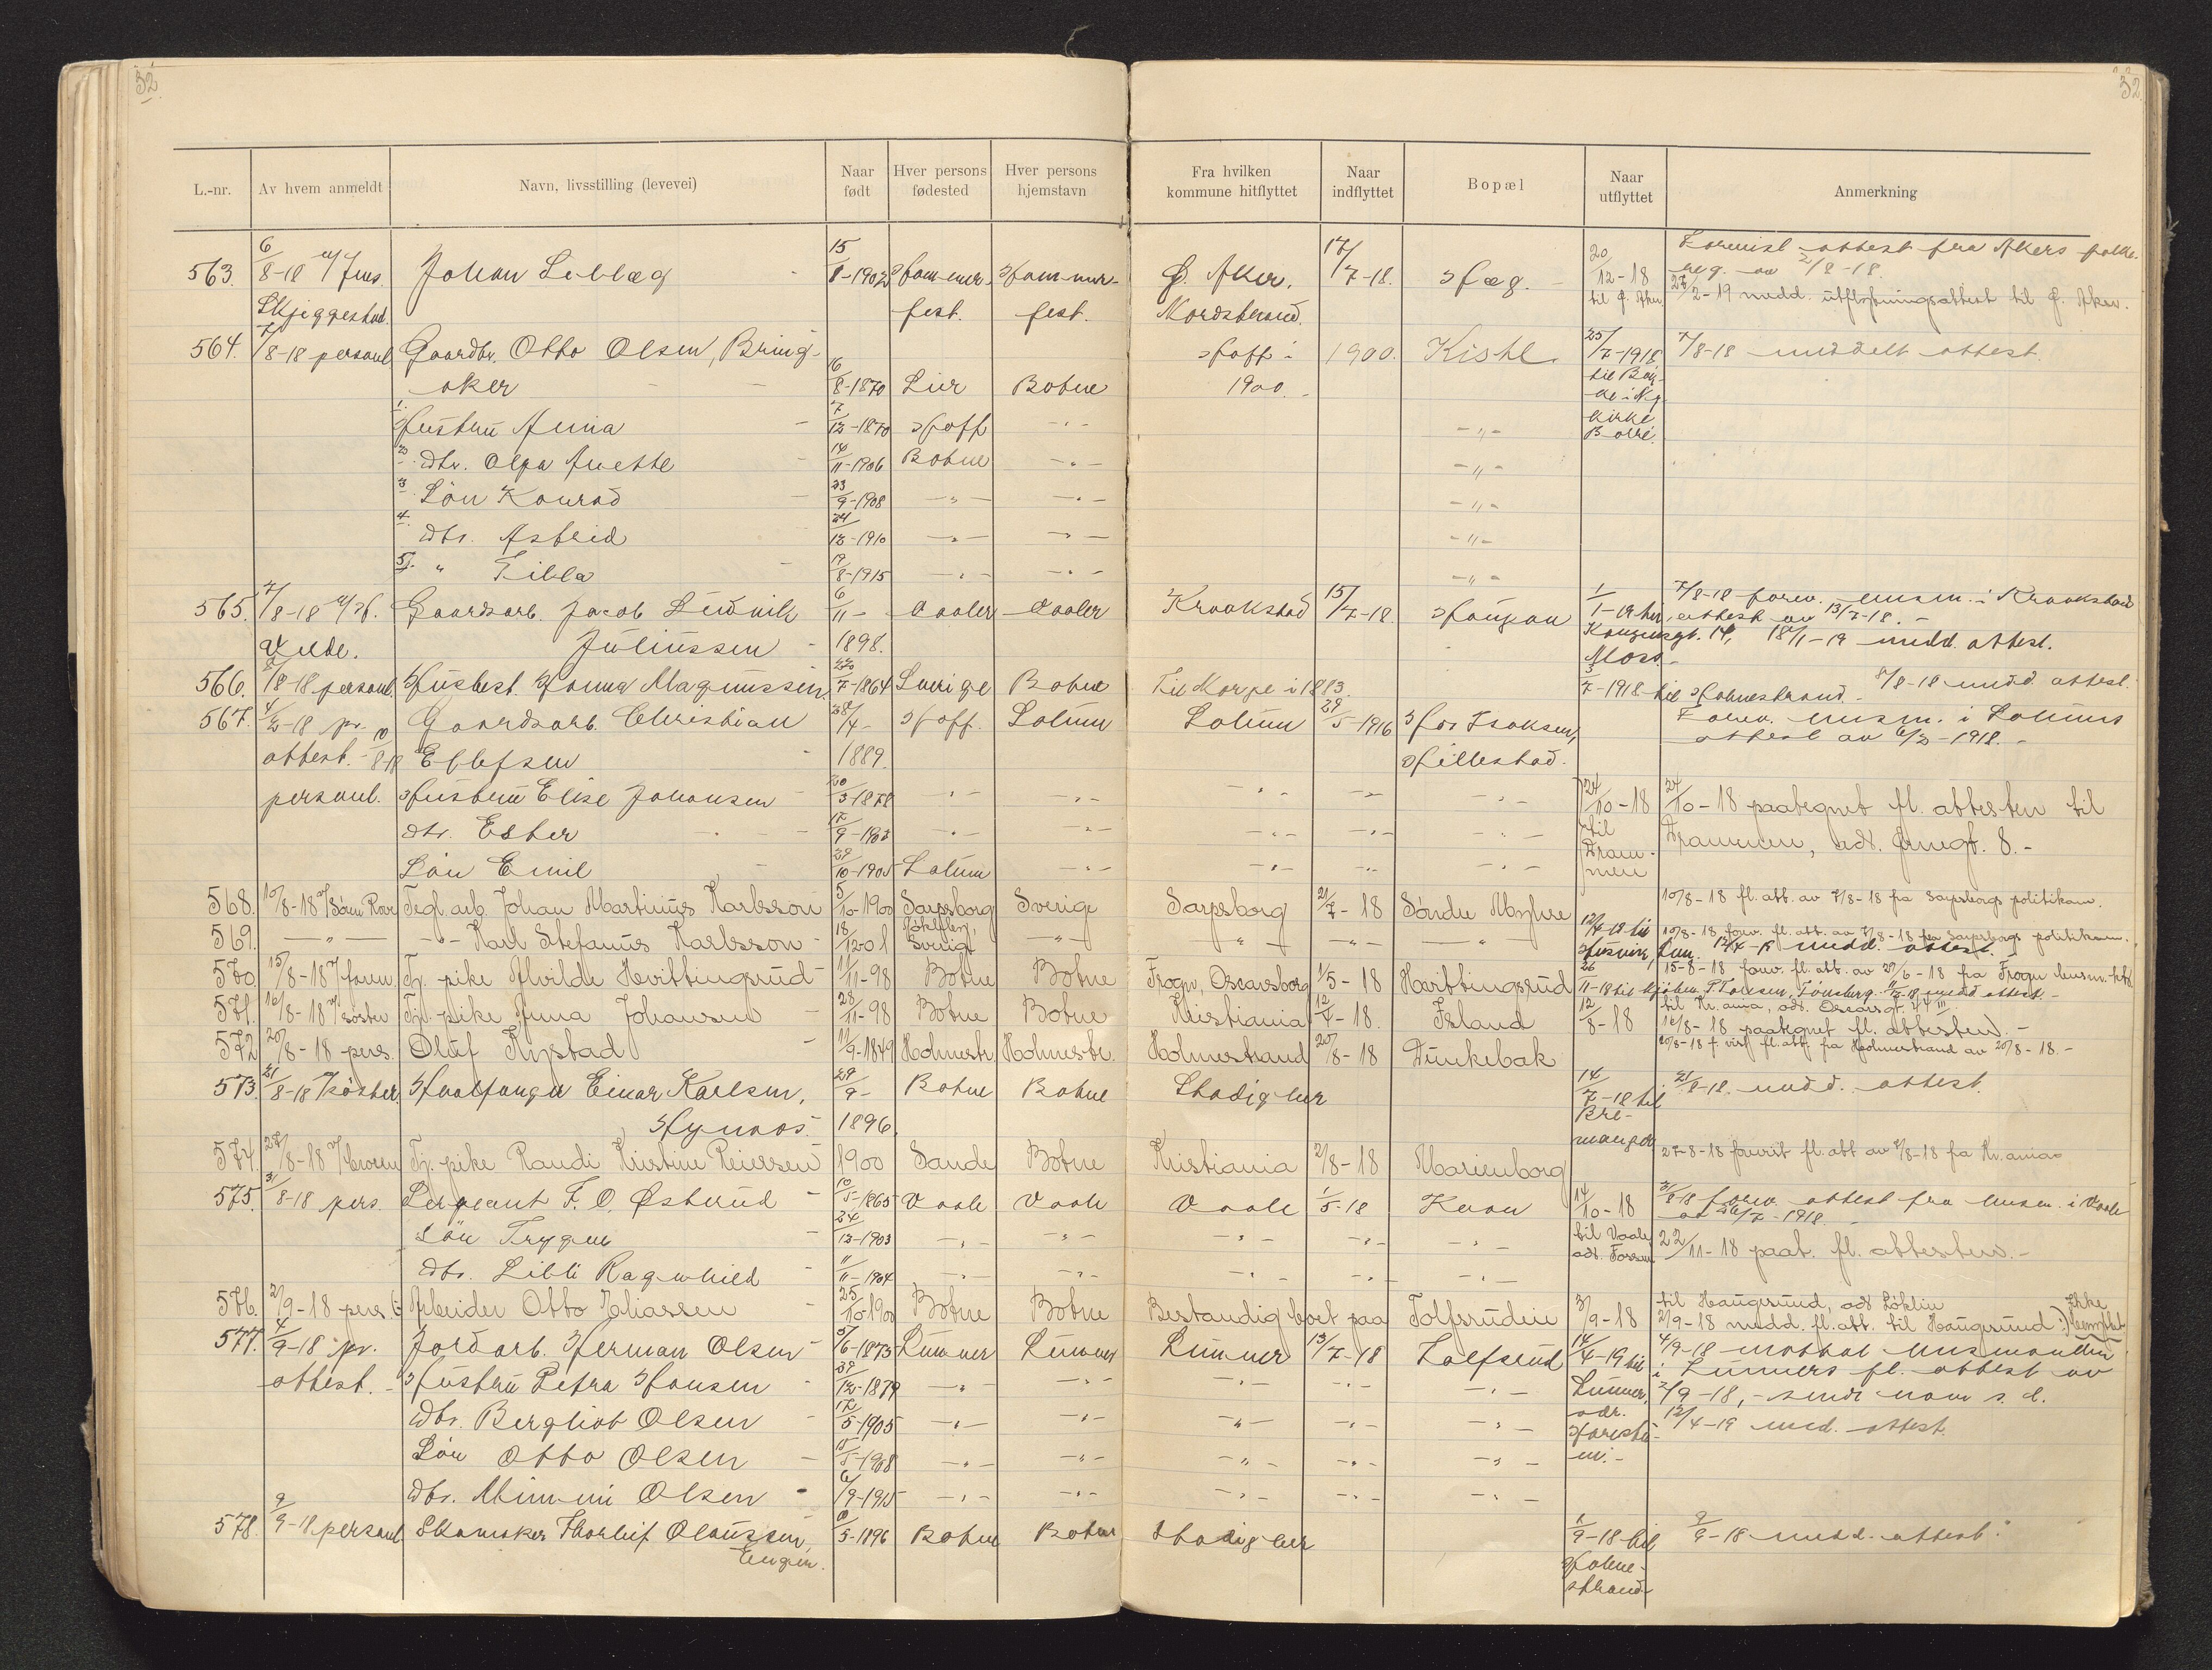 32.
32.
L.-nr. Av hvem anmeldt Navn, livsstilling (levevei) Naar født Hver persons fødested Hver persons hjemstavn Fra hvilken kommune hitflyttet Naar indflyttet Bopæl Naar utflyttet Anmerkning
563. 6/8-18 Johan 15/8-1902 Hammer- Hammer- Ø. Aker. 17/7-18. Hæg. 20/12-18 Forevist attest fra Akers folke-
Skjeggestad. fest. fest. Nordstrand. til Ø. Aker reg. av 2/8-18.
27/2-19 medd. utflytningsattest til Ø. Aker.
564. 7/8-18 personl. Gaardbr. Otto Olsen, Bring- Hoff i 1900. Kistl. 25/7-1918 7/8-18 meddelt attest.
aker 6/8-1870 Lier Botne 1900.
1. Hustru Anna 7/12-1870 Hoff -"- -"- kirke Borre.
2. dtr. Olga Anette 14/11-1906 Botne -"- -"-
3. Søn Konrad 23/9-1908 -"- -"- -"-
4. dtr. Astrid 24/12-1910 -"- -"- -"-
5. " 19/8-1915 -"- -"- -"-
565. 7/8-18 Gaardsarb. Jacob Ludvik 6/11- Vaaler Vaaler Kraakstad 15/7-18. Haugan 1/1-19 7/8-18 forev. lensm. i Kraakstad
Juliussen 1898. attest av 13/7-18.
Kongensgt. 14, Moss 18/1-19 medd. attest.
566. 8/8-18 personl. Husbest. Hanna Magnussen. 22/7-1864 Sverige Botne Til Norge i 1883. 3/7-1918 til Holmestrand. 8/8-18 medd. attest.
567. 4/2-18 pr. Gaardsarb. Christian 28/4- Hoff. Solum Solum 29/5-1916 Hos Isaksen, Forev. lensm. i Solums
attest. 10/8-18 Ellefsen 1889. Hillestad. attest av 6/2-1918.
personl. Hustru Elise Johansen 20/3-1878 -"- -"- -"- -"- -"- 24/10-18 24/10-18 paategnet fl. attesten til
dtr. Ester 17/9-1902 -"- -"- -"- -"- -"- til Drammen, adr. 8.
Søn Emil 29/10-1905 Solum -"- -"- -"- -"- Drammen
568. 10/8-18 Tegl. arb. Johan Martinus Karlsson 5/10-1900 Sarpsborg Sverige Sarpsborg 21/7-18 Søndre Myhre 10/8-18 fl. att. av 7/8-18 fra Sarpsborgs politikam.
569. -"- -"- Karl Stefanus Karlsson 18/12 01 Sverige -"- -"- -"- -"- 12/4-19 til 10/8-18 forev. fl. att. av 7/8-18 fra Sarpsborgs politikam.
Husvik, Sem. 12/4-19 medd. attest.
570. 15/8-18 Tj. pike Alvilde Hvittingsrud 11/11-98 Botne Botne Frogn, Oscarsborg 1/5-18 Hvittingsrud 26/11-18 15-8-18 forev. fl. att. av 29/6-18 fra Frogn lensm.
571. 16/8-18 søster Tj. pike Anna Johansen 28/11-98 Botne Botne Kristiania 12/4-18. Island 12/8-18 til Kr.ania, adr. Oscarsgt. 44 III
16/8-18 paategnet fl. attesten.
572 20/8-18 pers. Oluf Kjøstad 11/9-1849 Holmestr. Holmestr. Holmestrand 20/8-18 Dunkebak 20/8-18 fl. att. fra Holmestrand av 20/8-18.
573. 21/8-18 søster. Hvalfanger Einar Karlsen, 29/9- Botne Botne Stadig her 14/7-18 til Bremanger 21/8-18. medd. attest.
Hynaas. 1896.
574. 27/8-18 Tj. pike Randi Kristine Reiersen 1900 Sande Botne Kristiania 2/8-18 Marienborg 27-8-18 forevist fl. att av 2/8-18 fra Kr.ania
575. 31/8-18 pers. Sergeant F. O. Østerud 10/5-1865 Vaale Vaale Vaale 1/5-18 Kaan 14/10-18 31/8-18 forev. attest fra lensm. i Vaale
av 26/7-1918.
Søn Trygve 24/12-1903 -"- -"- -"- -"- -"- til Vaale 22/11-18 paat. fl. attesten.
dtr. Lilli Ragnhild 11/11-1904 -"- -"- -"- -"- -"-
576. 2/9-18 pers. Arbeider Otto Eliassen 25/10-1900 Botne Botne Bestandig boet paa Tolfsrudeie 3/9-18 til Haugesund, adr Løklin
2/9-18 medd. fl. att. til Haugesund Ikke benyttet
577. 4/9-18 pr. Jordarb. Herman Olsen 5/6-1873 Lunner Lunner Lunner 13/7-18 Tolfsrud 14/4-19 til 4/9-18 mottat lensmanden
attest. Hustru Petra Hansen 29/12-1879 -"- -"- -"- -"- -"- Lunner, i Lunners fl. attest av
2/9-18, sendt ham s. d.
dtr. Bergliot Olsen 17/5-1905 -"- -"- -"- -"- -"- adr. 12/4-19 med. attest.
Søn Otto Olsen 15/5-1908 -"- -"- -"- -"- -"-
dtr. Mimmi Olsen 6/9-1915 -"- -"- -"- -"- -"-
578. 9/9-18 personl. Skomaker Thorleif Olaussen, 8/5-1896 Botne Botne Stadig her 1/9-18 til 9/9-18 medd. attest.
Engen. Holme-
strand.